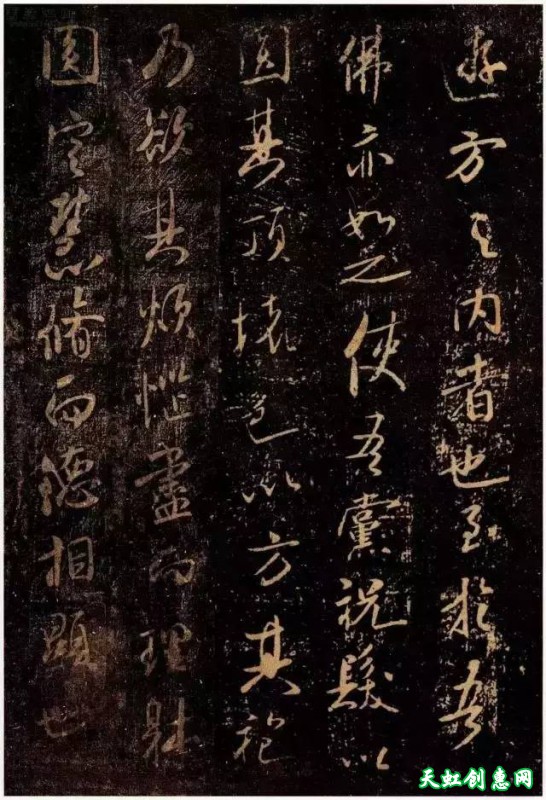 遊方之内者也至於吾
佛亦如之使吾黨祝髮以
圓其頂壞色以方其袍
乃欲其煩惱盡而理體
圓定慧脩而德相顯也
天虹创惠网